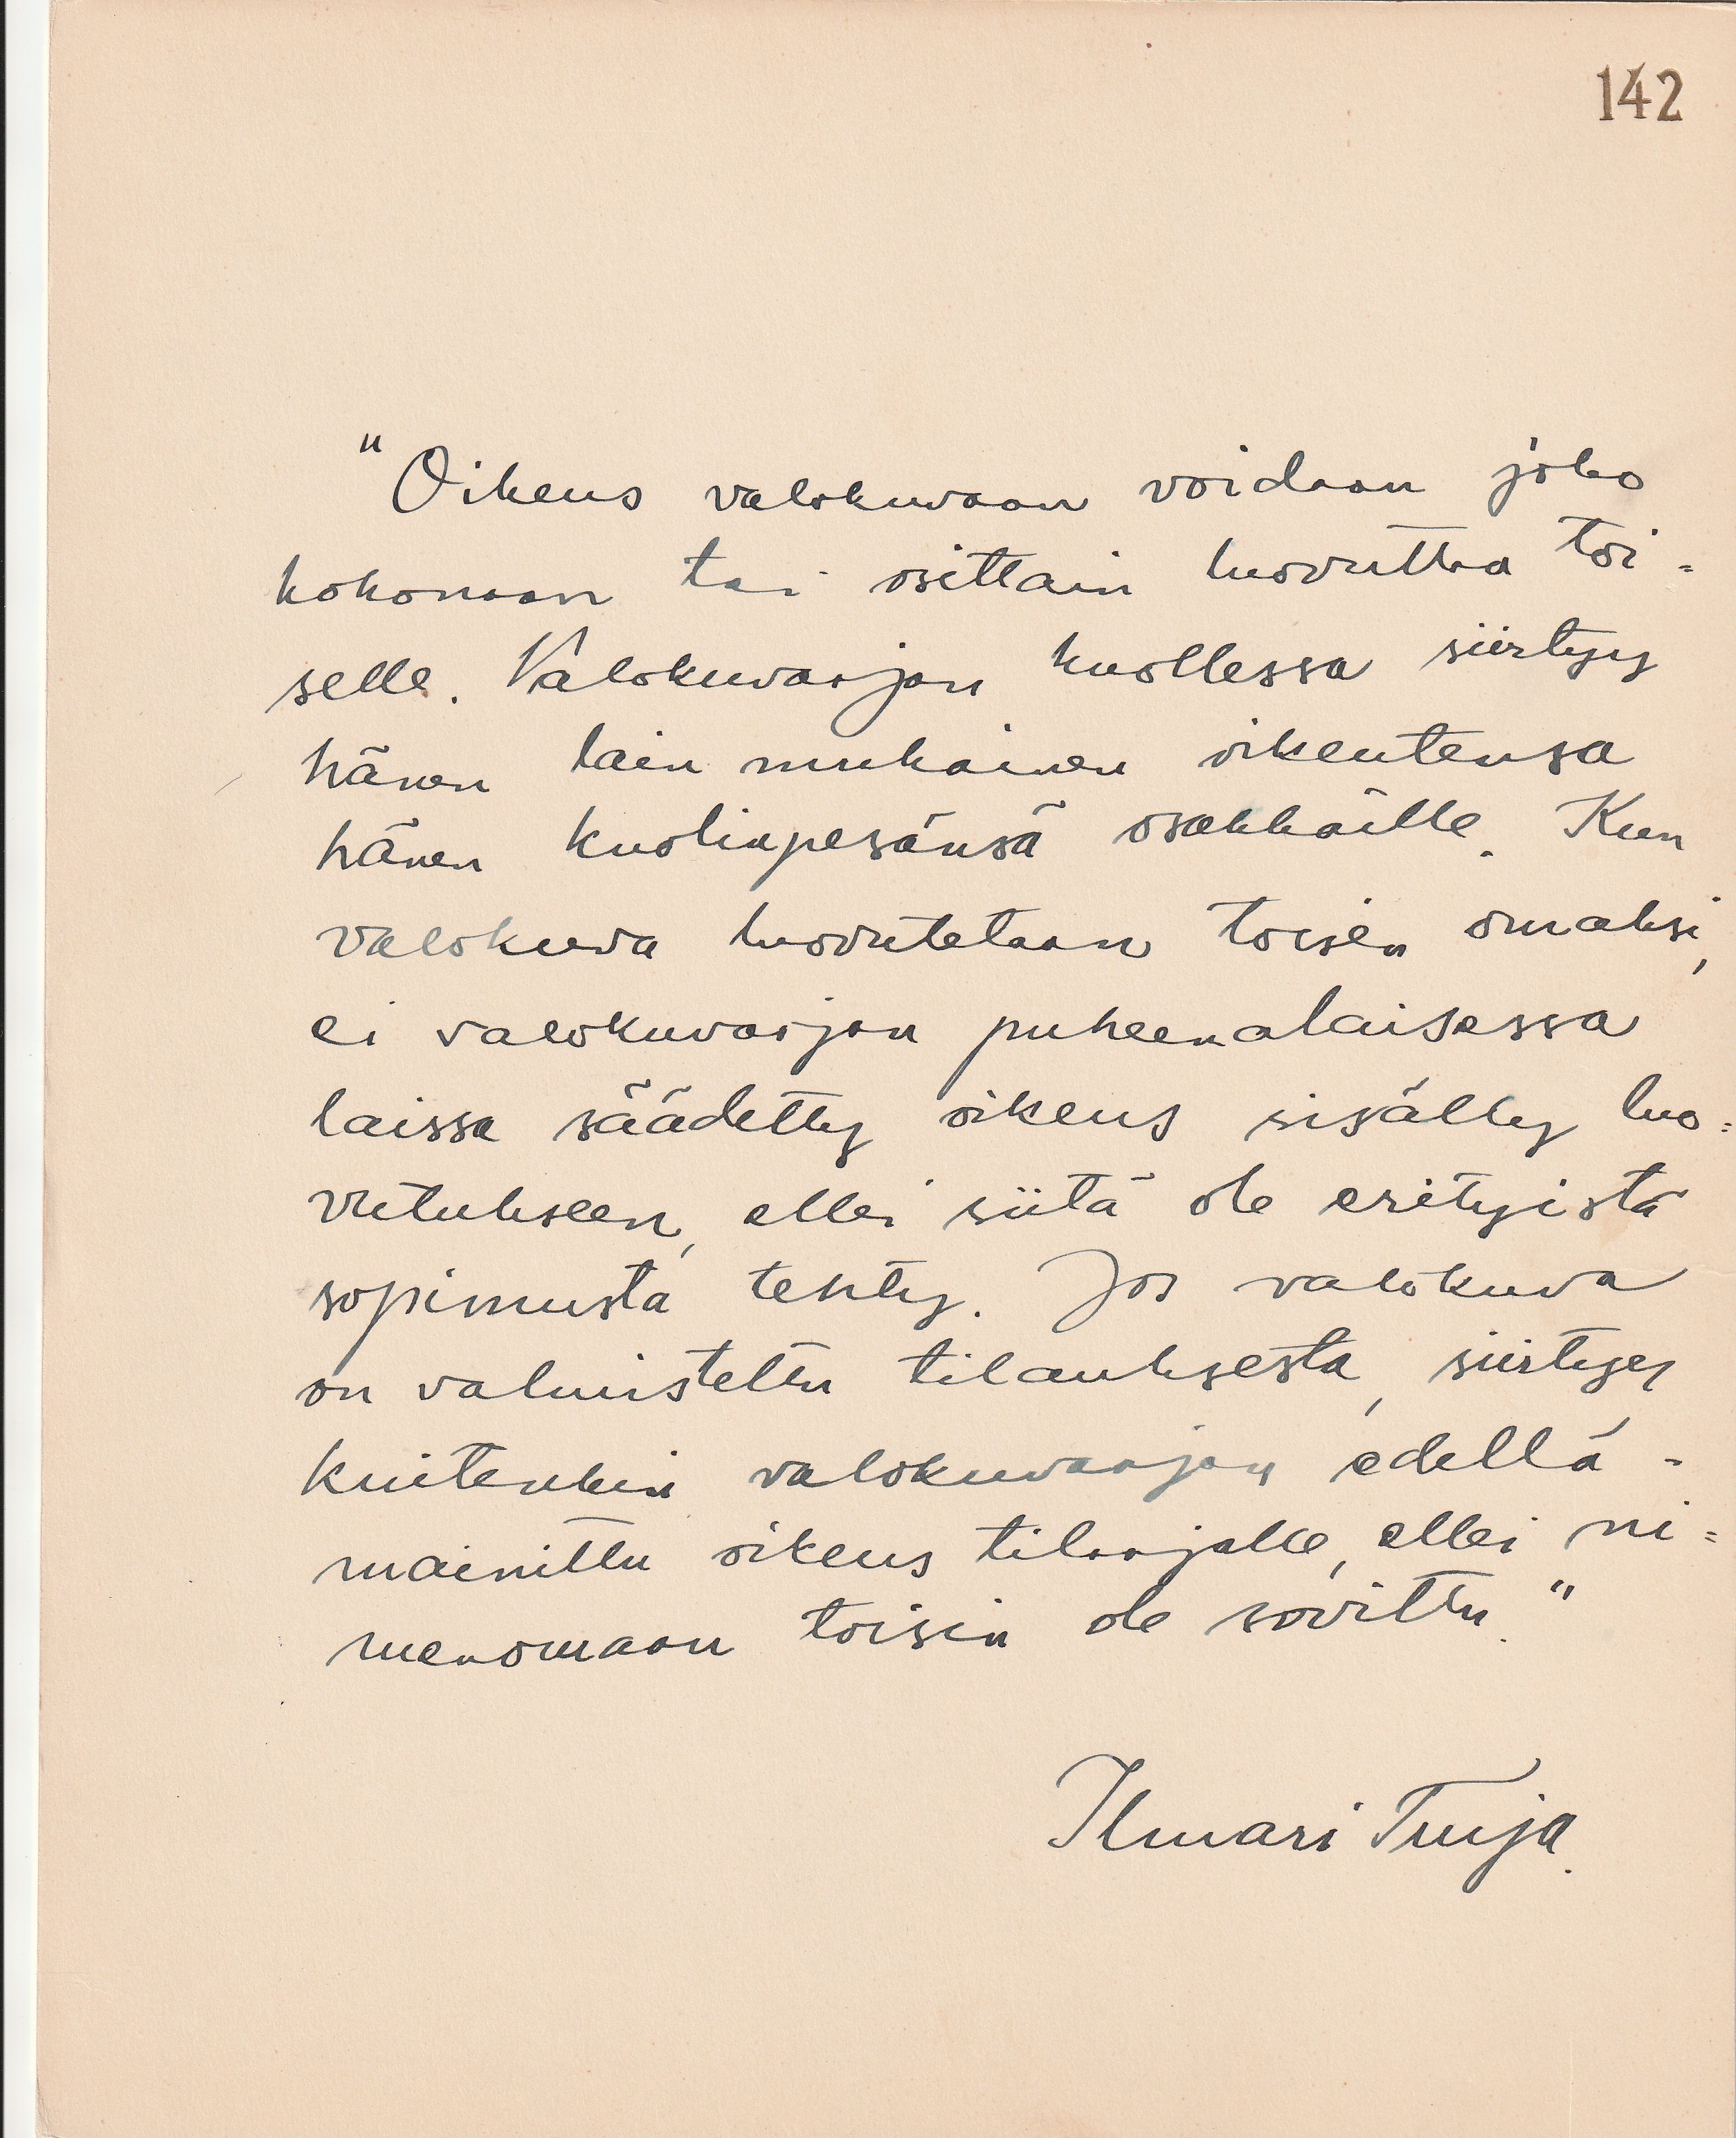 142
"Oikeus valokuvaan voidaan joko
kokonaan tai osittain luovuttaa toi=
selle. Valokuvaajan kuollessa siirtyy
hänen lain mukainen oikeutensa
hänen kuolinpesänsä osakkaille. Kun
valokuva luovutetaan toisen omaksi,
ei valokuvaajan puheenalaisessa
laissa säädetty oikeus sisälly luo=
vutukseen, ellei siitä ole erityistä
sopimusta tehty. Jos valokuva
on valmistettu tilauksesta, siirtyy
kuitenkin valokuvaajan edellä-
mainittu oikeus tilaajalle, ellei ni=
menomaan toisin ole sovittu."
Ilmari Turja.